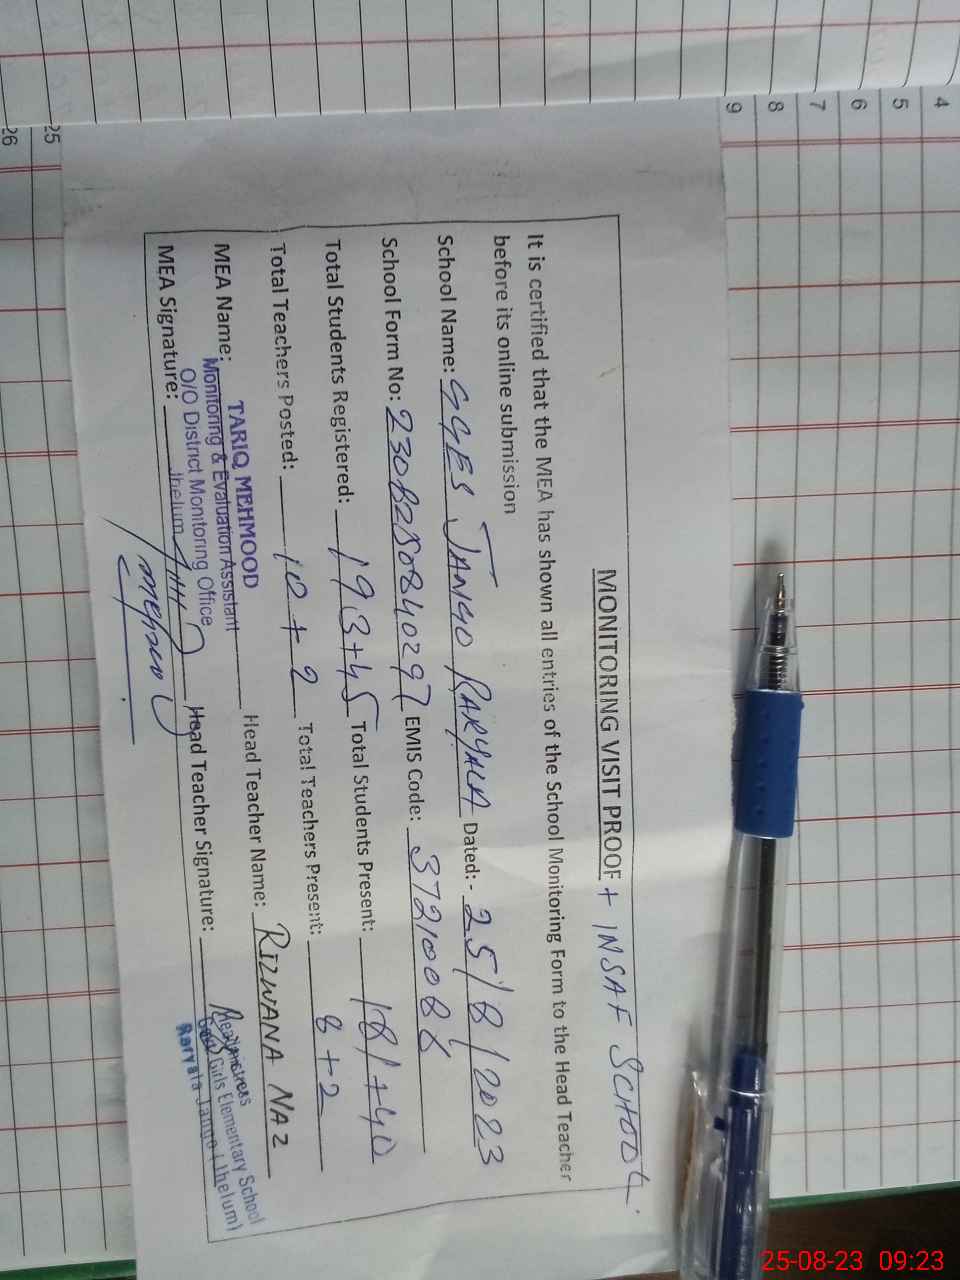 MONITORING VISIT PROOF + INSAF SCHOOL
It is certified that the MEA has shown all entries of the School Monitoring Form to the Head Teacher
before its online submission
School Name: GGES JANGO RARYALA Dated: - 25/8/2023
School Form No: 2308250840297 EMIS Code: 37210088
Total Students Registered: 193+45 Total Students Present: 181+40
Total Teachers Posted: 10+2 Total Teachers Present: 8+2
MEA Name: Head Teacher Name: RIZWANA NAZ
TARIQ MEHMOOD
Monitoring & Evaluation Assistant
O/O District Monitoring Office
Jhelum
MEA Signature: Head Teacher Signature:
Headmistress
Govt Girls Elementary School
Raryala Jango (Jhelum)
4
5
6
7
8
9
25
26
25-08-23 09:23